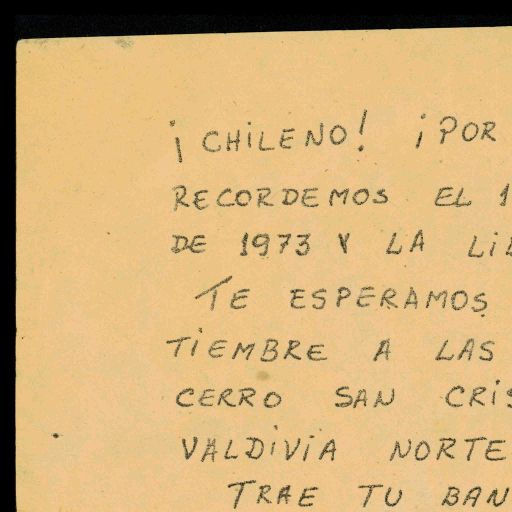 ¡CHILENO! ¡POR
RECORDEMOS EL 1
DE 1973 Y LA LIB
TE ESPERAMOS
TIEMBRE A LAS
CERRO SAN CRIS
VALDIVIA NORTE
TRAE TU BAN